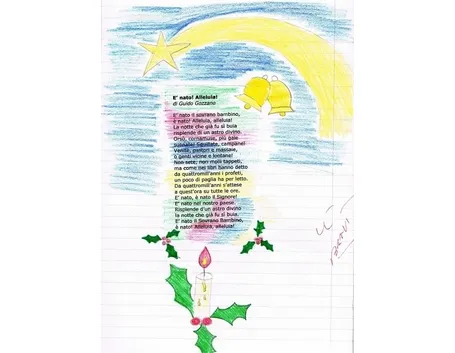 E' nato! Alleluia!
di Guido Gozzano
E' nato il sovrano bambino,
è nato! Alleluia, alleluia!
La notte che già fu si buia
risplende di un astro divino.
Orsù, cornamuse, più gaie
suonate! Squillate, campane!
Venite, pastori e massaie,
o genti vicine e lontane!
Non sete, non molli tappeti,
ma come nei libri hanno detto
da quattromill'anni i profeti,
un poco di paglia ha per letto.
Da quattromill'anni s'attese
a quest'ora su tutte le ore.
E' nato, è nato il Signore!
E' nato nel nostro paese.
Risplende d'un astro divino
la notte che già fu si buia.
E' nato il Sovrano Bambino,
è nato! Alleluia, alleluia!